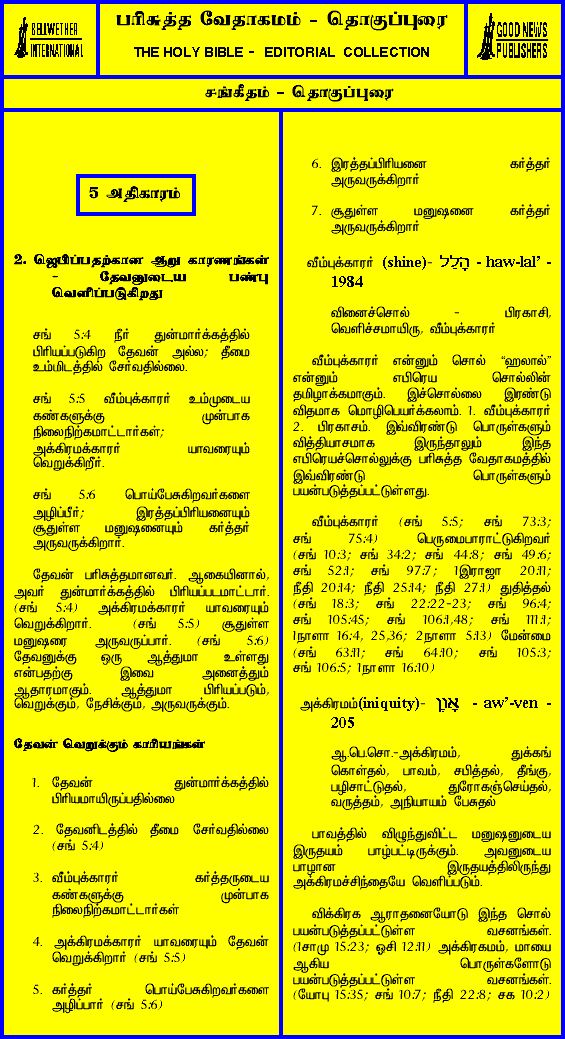 BELLWETHER
INTERNATIONAL
பரிசுத்த வேதாகமம் - தொகுப்புரை
THE HOLY BIBLE - EDITORIAL COLLECTION
GOOD NEWS
PUBLISHERS
சங்கீதம் - தொகுப்புரை
5 அதிகாரம்
2. ஜெபிப்பதற்கான ஆறு காரணங்கள்
- தேவனுடைய பண்பு
வெளிப்படுகிறது
சங் 5:4 நீர் துன்மார்க்கத்தில்
பிரியப்படுகிற தேவன் அல்ல; தீமை
உம்மிடத்தில் சேர்வதில்லை.
சங் 5:5 வீம்புக்காரர் உம்முடைய
கண்களுக்கு முன்பாக
நிலைநிற்கமாட்டார்கள்;
அக்கிரமக்காரர் யாவரையும்
வெறுக்கிறீர்.
சங் 5:6 பொய்பேசுகிறவர்களை
அழிப்பீர்; இரத்தப்பிரியனையும்
சூதுள்ள மனுஷனையும் கர்த்தர்
அருவருக்கிறார்.
தேவன் பரிசுத்தமானவர். ஆகையினால்,
அவர் துன்மார்க்கத்தில் பிரியப்படமாட்டார்.
(சங் 5:4) அக்கிரமக்காரர் யாவரையும்
வெறுக்கிறார். (சங் 5:5) சூதுள்ள
மனுஷரை அருவருப்பார். (சங் 5:6)
தேவனுக்கு ஒரு ஆத்துமா உள்ளது
என்பதற்கு இவை அனைத்தும்
ஆதாரமாகும். ஆத்துமா பிரியப்படும்,
வெறுக்கும், நேசிக்கும், அருவருக்கும்.
தேவன் வெறுக்கும் காரியங்கள்
1. தேவன் துன்மார்க்கத்தில்
பிரியமாயிருப்பதில்லை
2. தேவனிடத்தில் தீமை சேர்வதில்லை
(சங் 5:4)
3. வீம்புக்காரர் கர்த்தருடைய
கண்களுக்கு முன்பாக
நிலைநிற்கமாட்டார்கள்
4. அக்கிரமக்காரர் யாவரையும் தேவன்
வெறுக்கிறார் (சங் 5:5)
5. கர்த்தர் பொய்பேசுகிறவர்களை
அழிப்பார் (சங் 5:6)
6. இரத்தப்பிரியனை கர்த்தர்
அருவருக்கிறார்
7. சூதுள்ள மனுஷனை கர்த்தர்
அருவருக்கிறார்
வீம்புக்காரர் (shine)- הָלַל - haw-lal’ -
1984
வினைச்சொல் - பிரகாசி,
வெளிச்சமாயிரு, வீம்புக்காரர்
வீம்புக்காரர் என்னும் சொல் “ஹலால்”
என்னும் எபிரெய சொல்லின்
தமிழாக்கமாகும். இச்சொல்லை இரண்டு
விதமாக மொழிபெயர்க்கலாம். 1. வீம்புக்காரர்
2. பிரகாசம். இவ்விரண்டு பொருள்களும்
வித்தியாசமாக இருந்தாலும் இந்த
எபிரெயச்சொல்லுக்கு பரிசுத்த வேதாகமத்தில்
இவ்விரண்டு பொருள்களும்
பயன்படுத்தப்பட்டுள்ளது.
வீம்புக்காரர் (சங் 5:5; சங் 73:3;
சங் 75:4) பெருமைபாராட்டுகிறவர்
(சங் 10:3; சங் 34:2; சங் 44:8; சங் 49:6;
சங் 52:1; சங் 97:7; 1இராஜா 20:11;
நீதி 20:14; நீதி 25:14; நீதி 27:1) துதித்தல்
(சங் 18:3; சங் 22:22-23; சங் 96:4;
சங் 105:45; சங் 106:1,48; சங் 111:1;
1நாளா 16:4, 25,36; 2நாளா 5:13) மேன்மை
(சங் 63:11; சங் 64:10; சங் 105:3;
சங் 106:5; 1நாளா 16:10)
அக்கிரமம்(iniquity)- אָוֶן - aw’-ven -
205
ஆ.பெ.சொ.-அக்கிரமம், துக்கங்
கொள்தல், பாவம், சபித்தல், தீங்கு,
பழிசாட்டுதல், துரோகஞ்செய்தல்,
வருத்தம், அநியாயம் பேசுதல்
பாவத்தில் விழுந்துவிட்ட மனுஷனுடைய
இருதயம் பாழ்பட்டிருக்கும். அவனுடைய
பாழான இருதயத்திலிருந்து
அக்கிரமச்சிந்தையே வெளிப்படும்.
விக்கிரக ஆராதனையோடு இந்த சொல்
பயன்படுத்தப்பட்டுள்ள வசனங்கள்.
(1சாமு 15:23; ஓசி 12:11) அக்கிரகமம், மாயை
ஆகிய பொருள்களோடு
பயன்படுத்தப்பட்டுள்ள வசனங்கள்.
(யோபு 15:35; சங் 10:7; நீதி 22:8; சக 10:2)